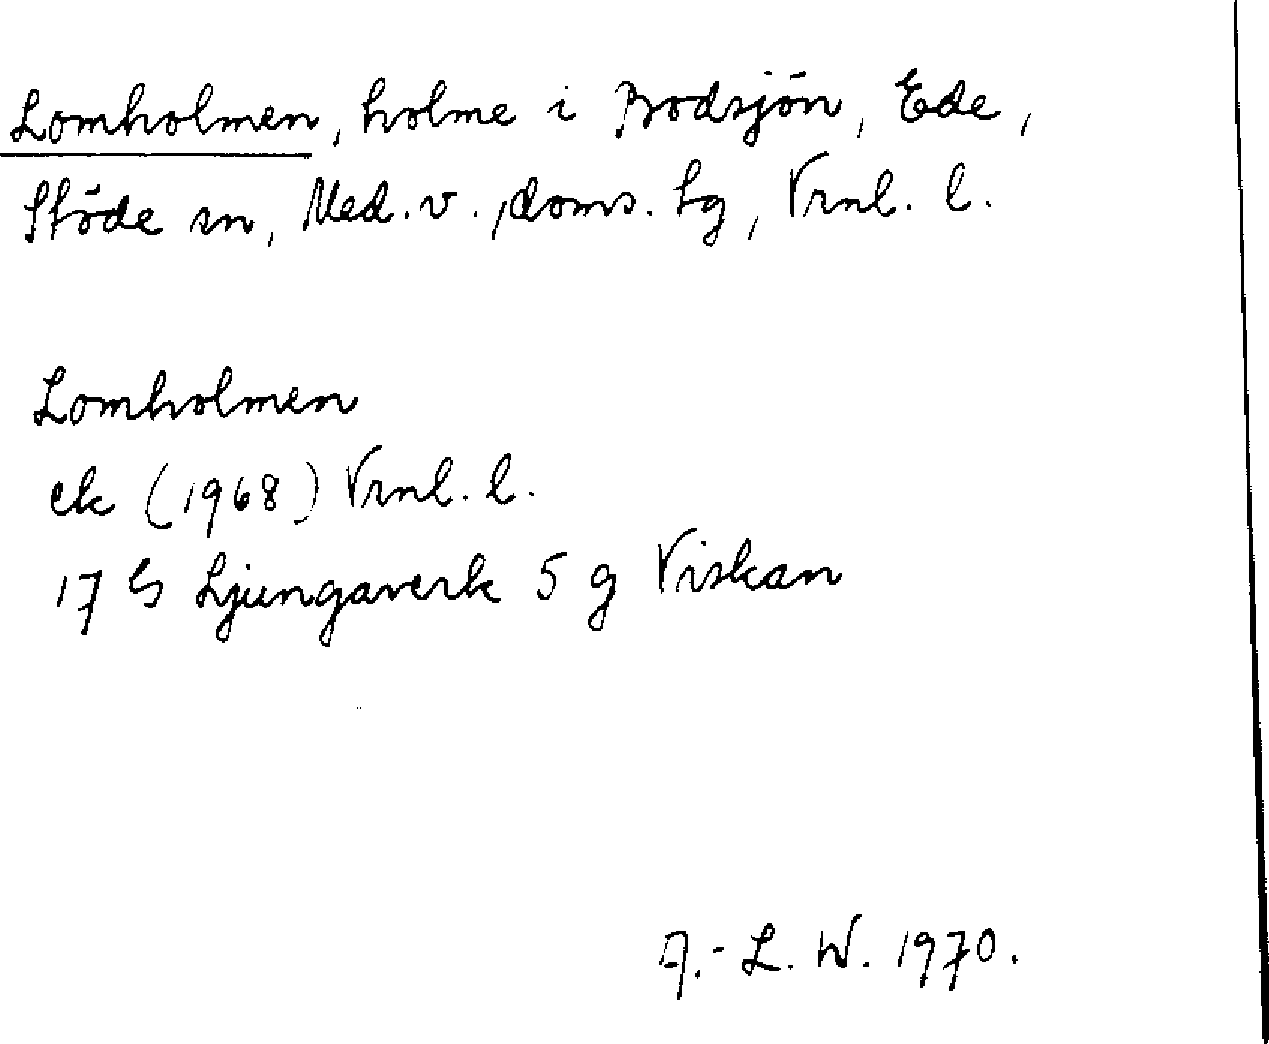 Lomholmen, holme i Bodsjön, Ede,
Stöde sn, Med. v., doms. lg, Vrnl. l.
Lomholmen
ek (1968) Vrnl. l.
17 G Ljungaverk 5 g Viskan
A.-L. W. 1970.